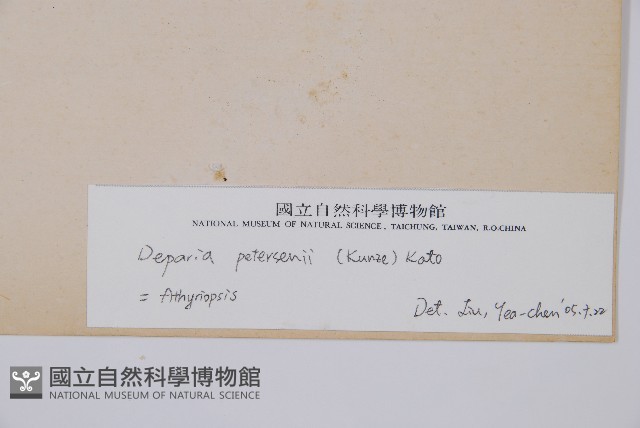 國立自然科學博物館
NATIONAL MUSEUM OF NATURAL SCIENCE, TAICHUNG, TAIWAN, R.O.CHINA
Deparia petersenii (Kunze) Kato
= Athyriopsis
Det. Liu, Yea-chen '05.7.22
國立自然科學博物館
NATIONAL MUSEUM OF NATURAL SCIENCE